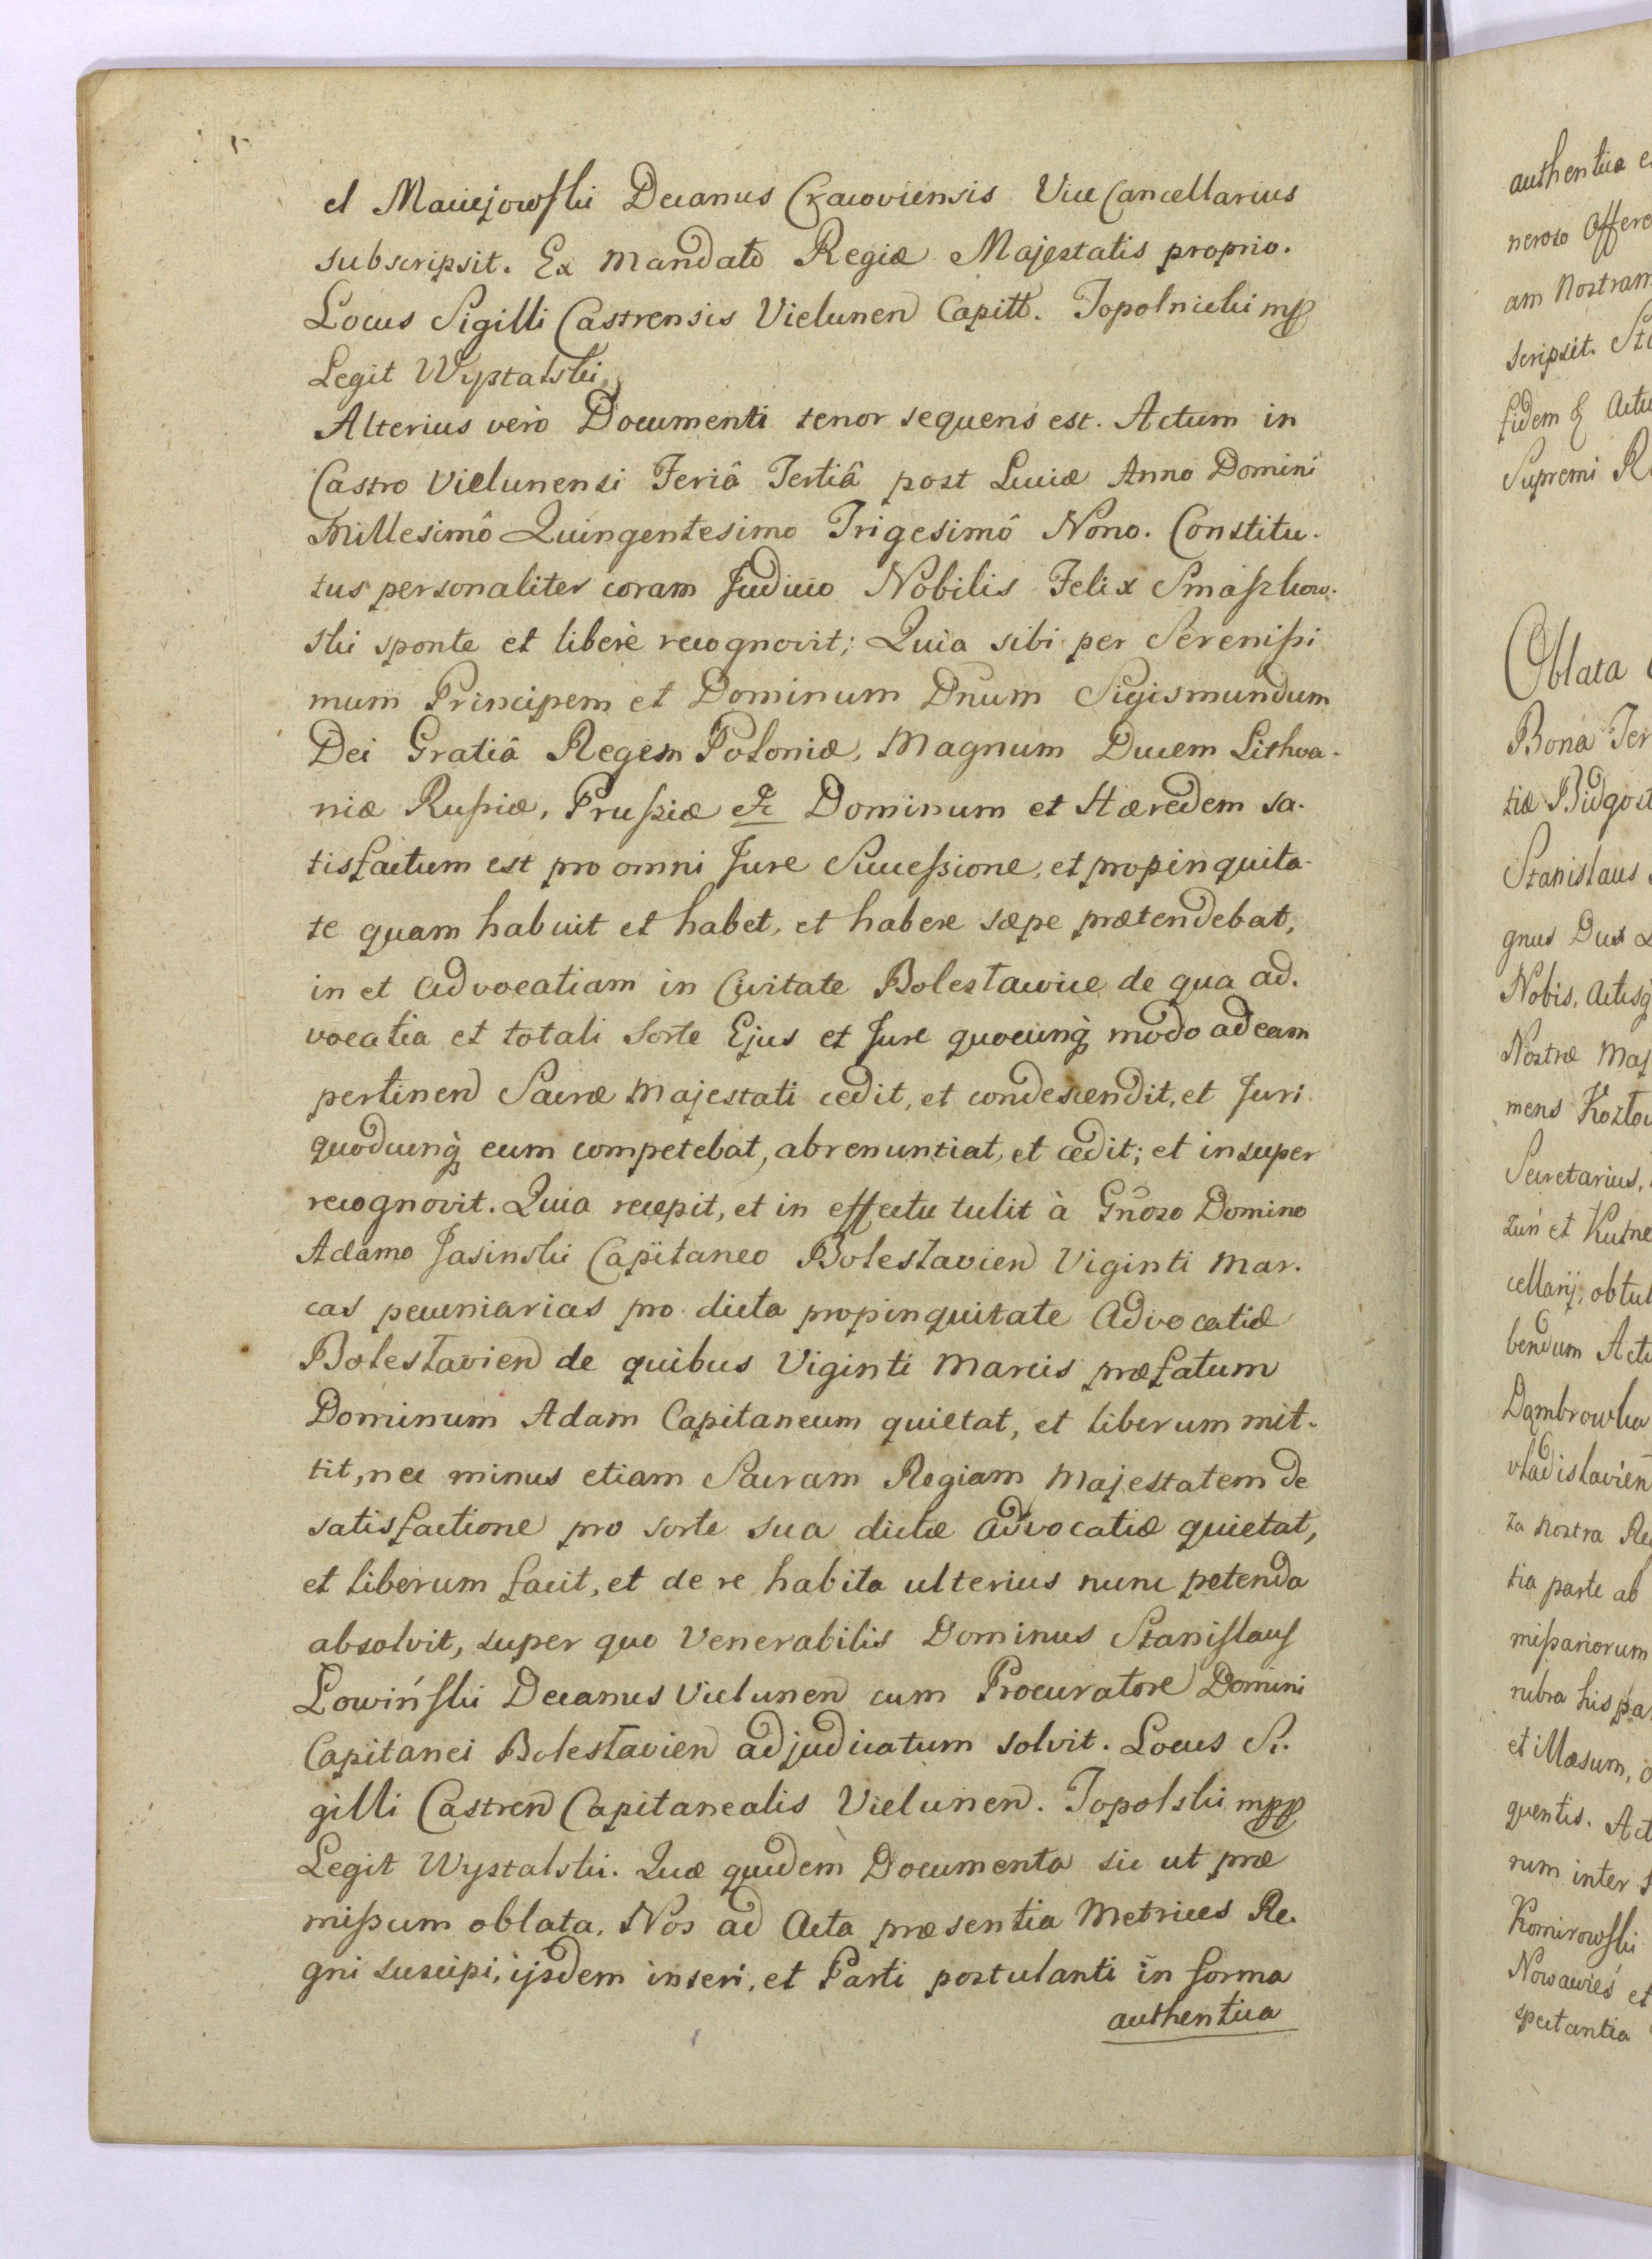 el Maciejowski Decanus Cracoviensis Vice Cancellarius
subscripsit. Ex Mandato Regiæ Majestatis proprio.
Locus Sigilli Castrensis Vielunen Capitt. Topolnicki mp
Legit Wystalski
Alterius verò Documenti tenor sequens est. Actum in
Castro Vielunensi Feriâ Tertiâ post Luciæ Anno Domini
Millesimô Quingentesimo Trigesimô Nono. Constitu-
tus personaliter coram Judicio Nobilis Felix Smaszkow-
ski sponte et liberè recognovit; Quia sibi per Serenissi
mum Principem et Dominum Dnum Sigismundum
Dei Gratiâ Regem Poloniæ, Magnum Ducem Lithva-
niæ Russiæ, Prussiæ &c Dominum et Hæredem sa-
tisfactum est pro omni Jure Successione, et propinquita-
te quam habuit et habet, et habere sæpe prætendebat,
in et Advocatiam in Civitate Bolesławice de qua ad-
vocatia et totali sorte Ejus et Jure quocunq; modo ad eam
pertinen Sacræ Majestati cedit, et condescendit, et Juri
quodcunq; eum competebat, abrenuntiat, et cedit; et insuper
recognovit. Quia recepit, et in effectu tulit à Gñoso Domino
Adamo Jasinski Capitaneo Bolesłavien Viginti Mar-
cas pecuniarias pro dicta propinquitate Advocatiæ
Bolesłavien de quibus Viginti Marcis præfatum
Dominum Adam Capitaneum quietat, et liberum mit-
tit, nec minus etiam Sacram Regiam Majestatem de
satisfactione pro sorte sua dictæ Advocatiæ quietat,
et liberum facit, et de re habita ulterius nunc petenda
absolvit, super quo Venerabilis Dominus Stanislaus
Łowiński Decanus Vielunen cum Procuratore Domini
Capitanei Bolesłavien adjudicatum solvit. Locus Si-
gilli Castren Capitanealis Vielunen. Topolski mpp
Legit Wystalski. Quæ quidem Documenta sic ut præ
missum oblata, Nos ad Acta præsentia Metrices Re-
gni suscipi, ijsdem inseri, et Parti postulanti in forma
authentica
authentica
neroso Offere
am Nostram
scripsit. St
fidem & Actu
Supremi R
Oblata
Bona Ter
tiæ Bidgost
Stanislaus
gnus Dux
Nobis, Actisq
Nostræ Maj
mens Kozłow
Secretarius,
et Kutne
cellarij, obtul
bendum Acti
Dąmbrowka
vladislavien
ta nostra Re
tia parte ab
missariorum
rubra hispa
et illæsum,
quentis. Act
rum inter
Komirowski
Nowawieś et
spectantia